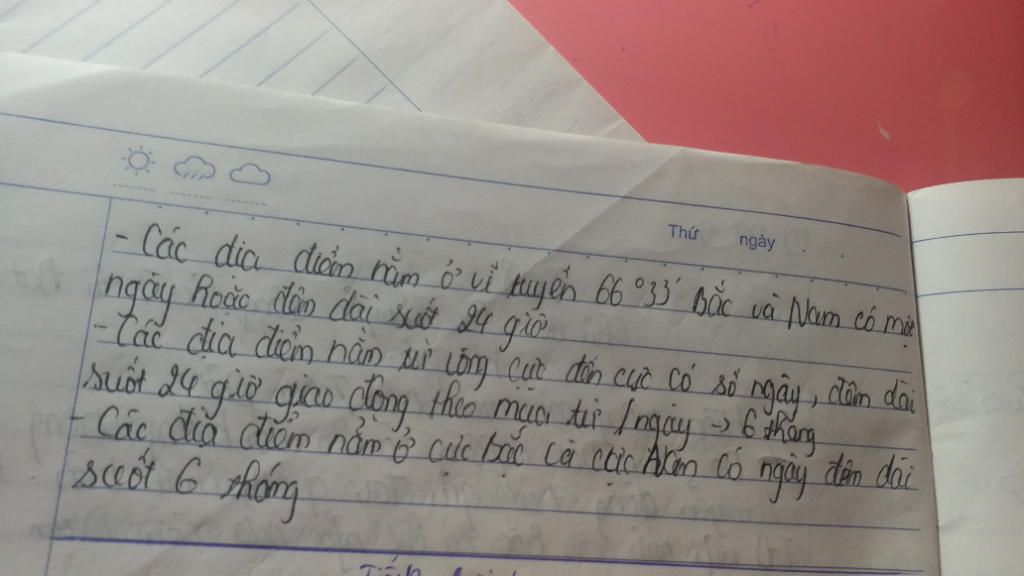 Thứ ngày
- Các địa điểm nằm ở vĩ tuyến 66°33' Bắc và Nam có một
ngày hoặc đêm dài suốt 24 giờ
- Các địa điểm nằm từ vòng cực đến cực có số ngày, đêm dài
suốt 24 giờ giao động theo mùa từ 1 ngày -> 6 tháng
- Các địa điểm nằm ở cực bắc và cực Nam có ngày đêm dài
suốt 6 tháng